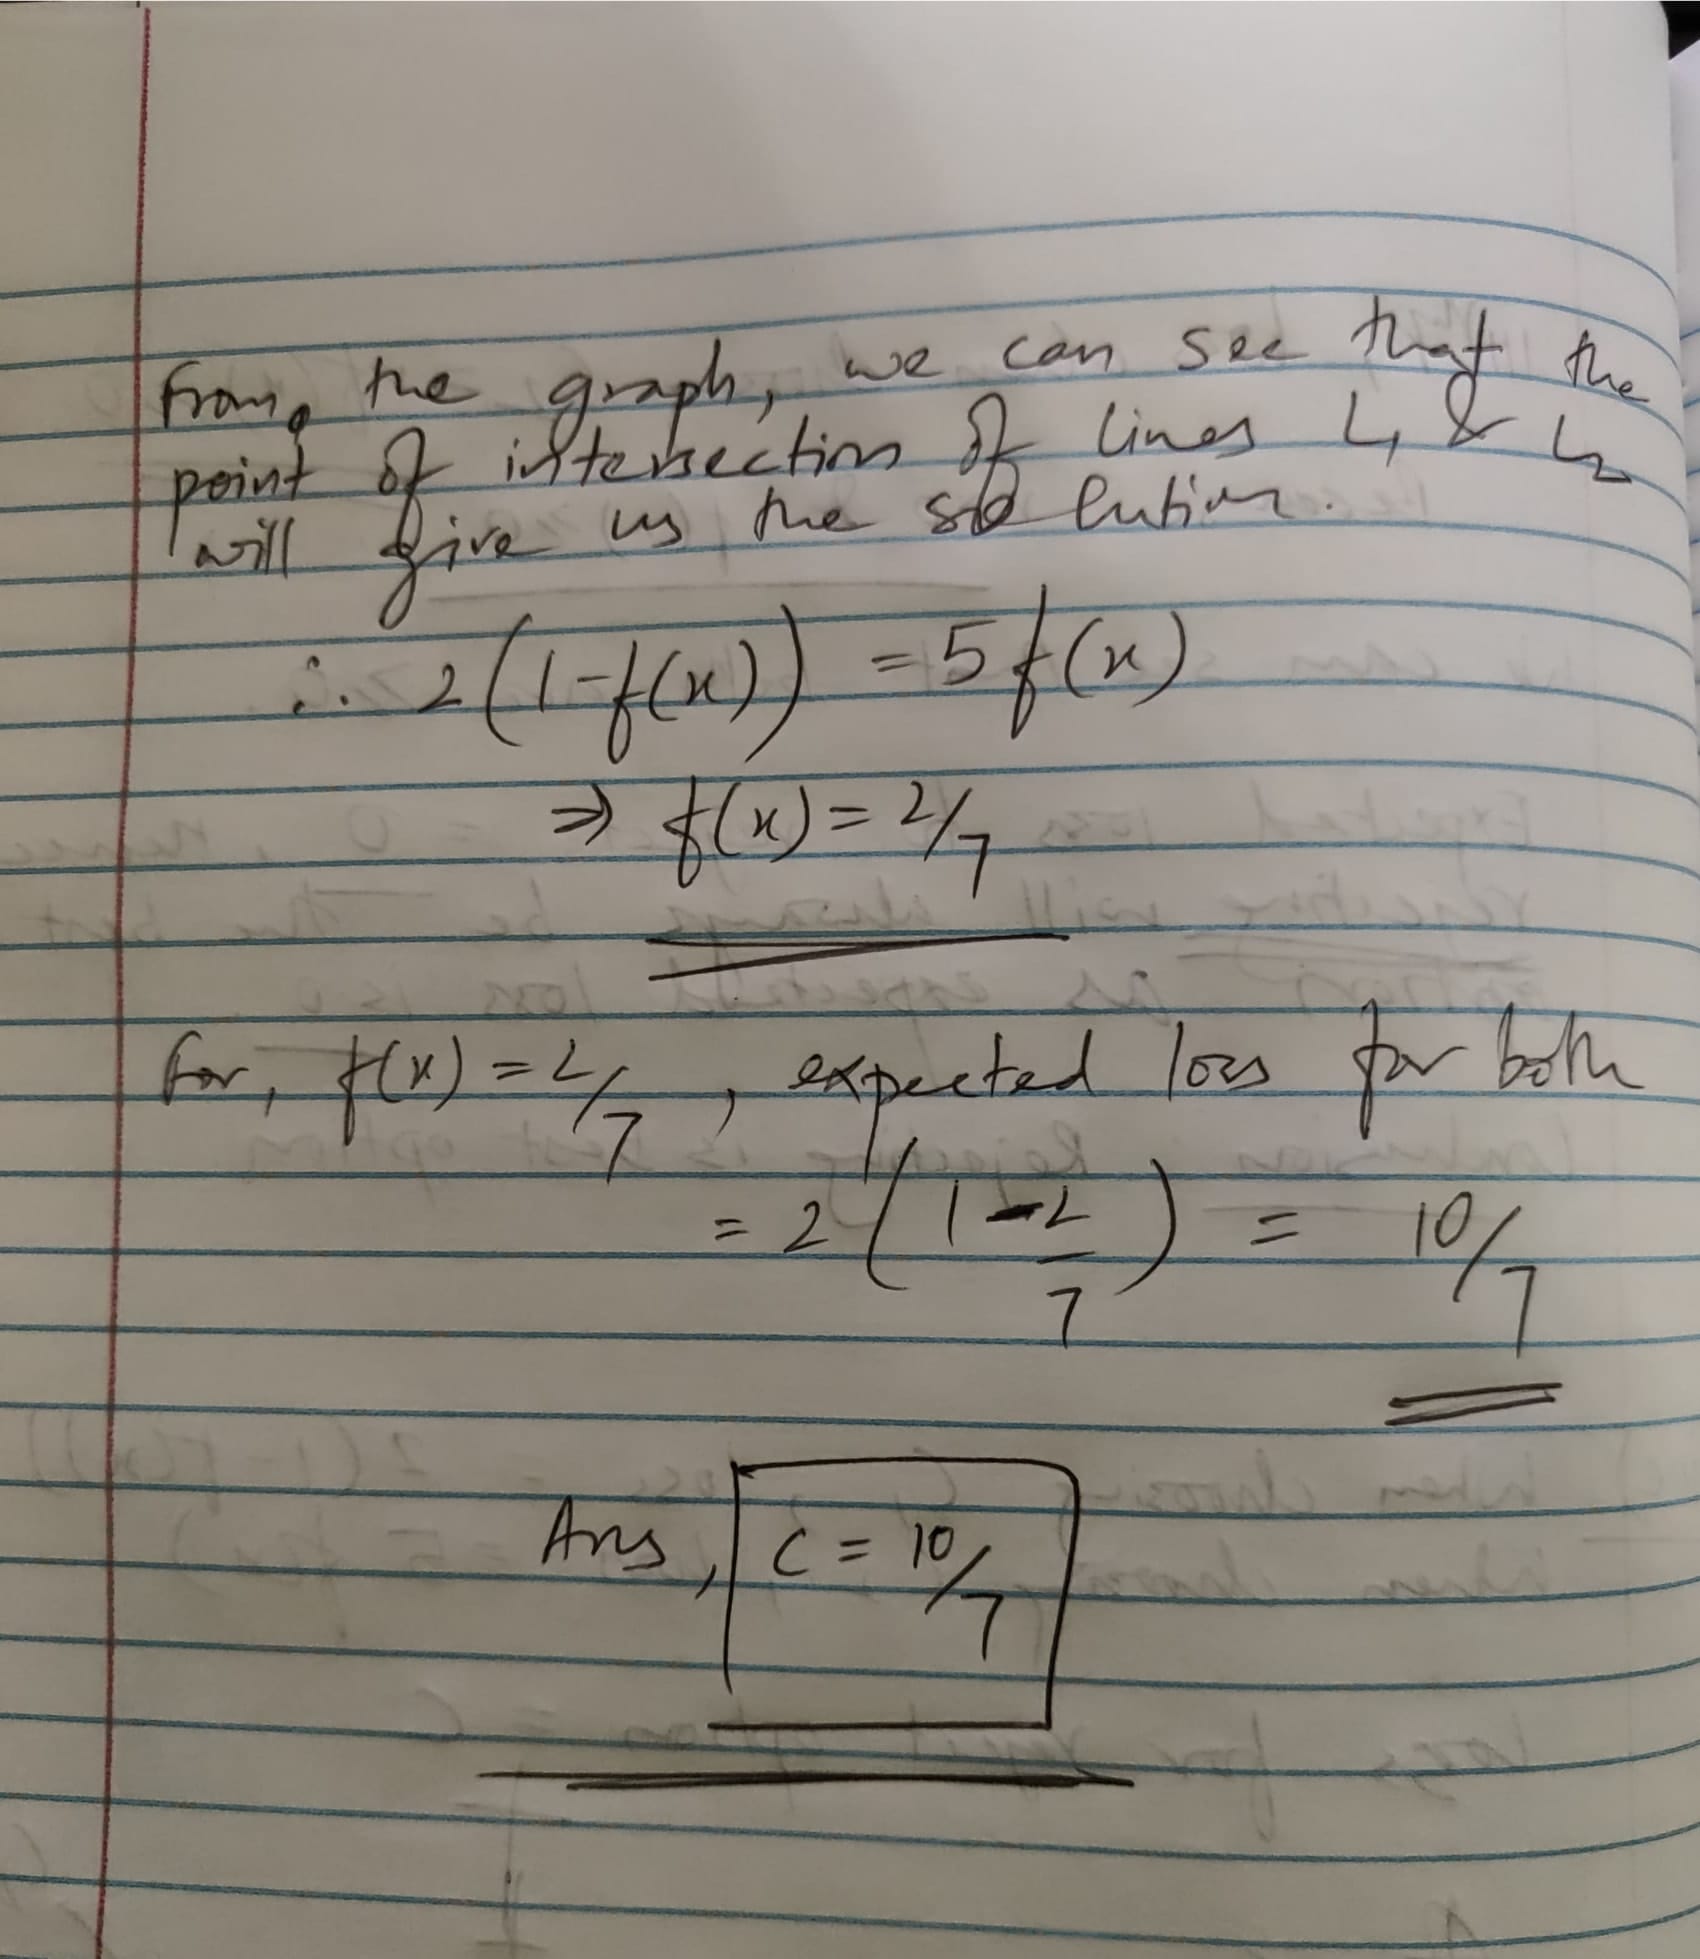 From the graph, we can see that the
point of intersection of lines L₁ & L₂
will give us the solution.
∴ 2(1-f(x)) = 5f(x)
⇒ f(x) = 2/7
For, f(x) = 2/7, expected loss for both
= 2(1-2/7) = 10/7
Ans, C = 10/7